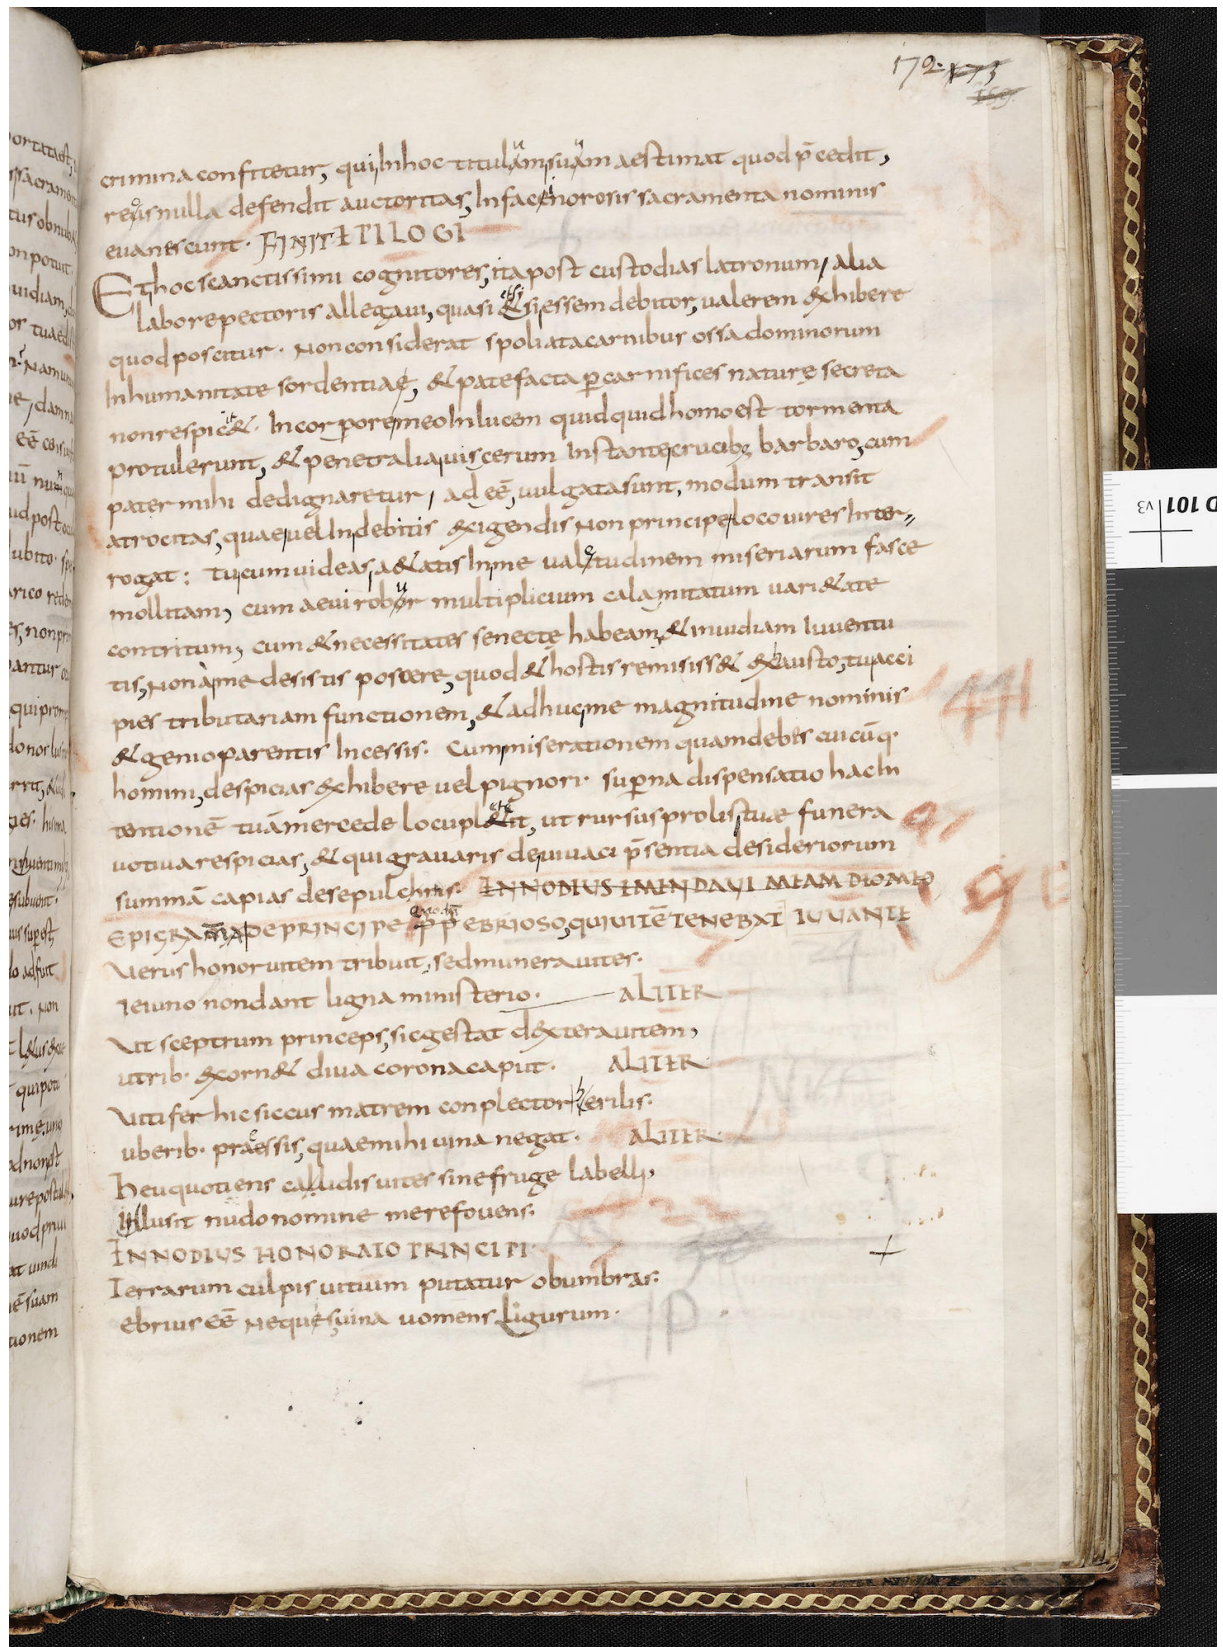 172. 173
159.
crimina confitetur, qui Inhoc titulam suam aestimat quod p̄cedit,
reus nulla defendit auctoritas, Infacinorosis sacramenta nominis
evanescunt. FINIT EPILOGI
Et hoc sanctissimi cognitores, ita post custodias latronum, alia
labore pectoris allegavi, quasi & si essem debitor, valerem exhibere
quod poscitur. Non considerat spoliata carnibus ossa dominorum
Inhumanitate sordentia, & patefacta p carnifices naturę secreta
non respic&. In corpore meo In lucem quidquid homo est tormenta
protulerunt, & penetralia viscerum Instante crucib; barbaro, cum
pater mihi dedignaretur, ad eē, vulgata sunt, modum transit
atrocitas, quae vel In debitis exigendis Non principe loco vires Inter-
rogat: tu cum videas a&atis In me valetudinem miseriarum fasce
mollitam, cum aevi robur multiplicium calamitatum vari&ate
contritum, cum & necessitates senectę habeam, & invidiam Iuventu
tis, Non a me desistis poscere, quod & hostis remisiss& exhausto, tu acci
pies tributariam functionem, & adhuc me magnitudine nominis
& genio parentis Incessis. Cum miserationem quam debes cuicūq.
homini, despicias exhibere vel pignori. superna dispensatio hac In
tentionē tuā mercede locupl&it, ut rursus prolis tuae funera
votiva respicias, & qui gravaris de vivaci p̄sentia desideriorum
summā capias de sepulchris. ENNODIUS
EPIGRAMMA DE PRINCIPE EBRIOSO, QUI VITĒ TENEBAT IUVANTE
Verus honor vitem tribuit, sed munera vites.
Ieiuno non dant ligna ministerio. ALITER
Ut sceptrum princeps, sic gestat dextera vitem,
utrib. exorn& diva corona caput. ALITER
Vitifer hic siccus matrem conplector herilis.
uberib. praessis, quae mihi vina negat. ALITER
Heu quotiens callidis vites sine fruge labelli,
Illusit nudo nomine me refovens.
ENNODIUS HONORATO PRINCIPI
Terrarum culpis vitium putatur obumbras.
ebrius eē nequis, vina vomens ligurum.